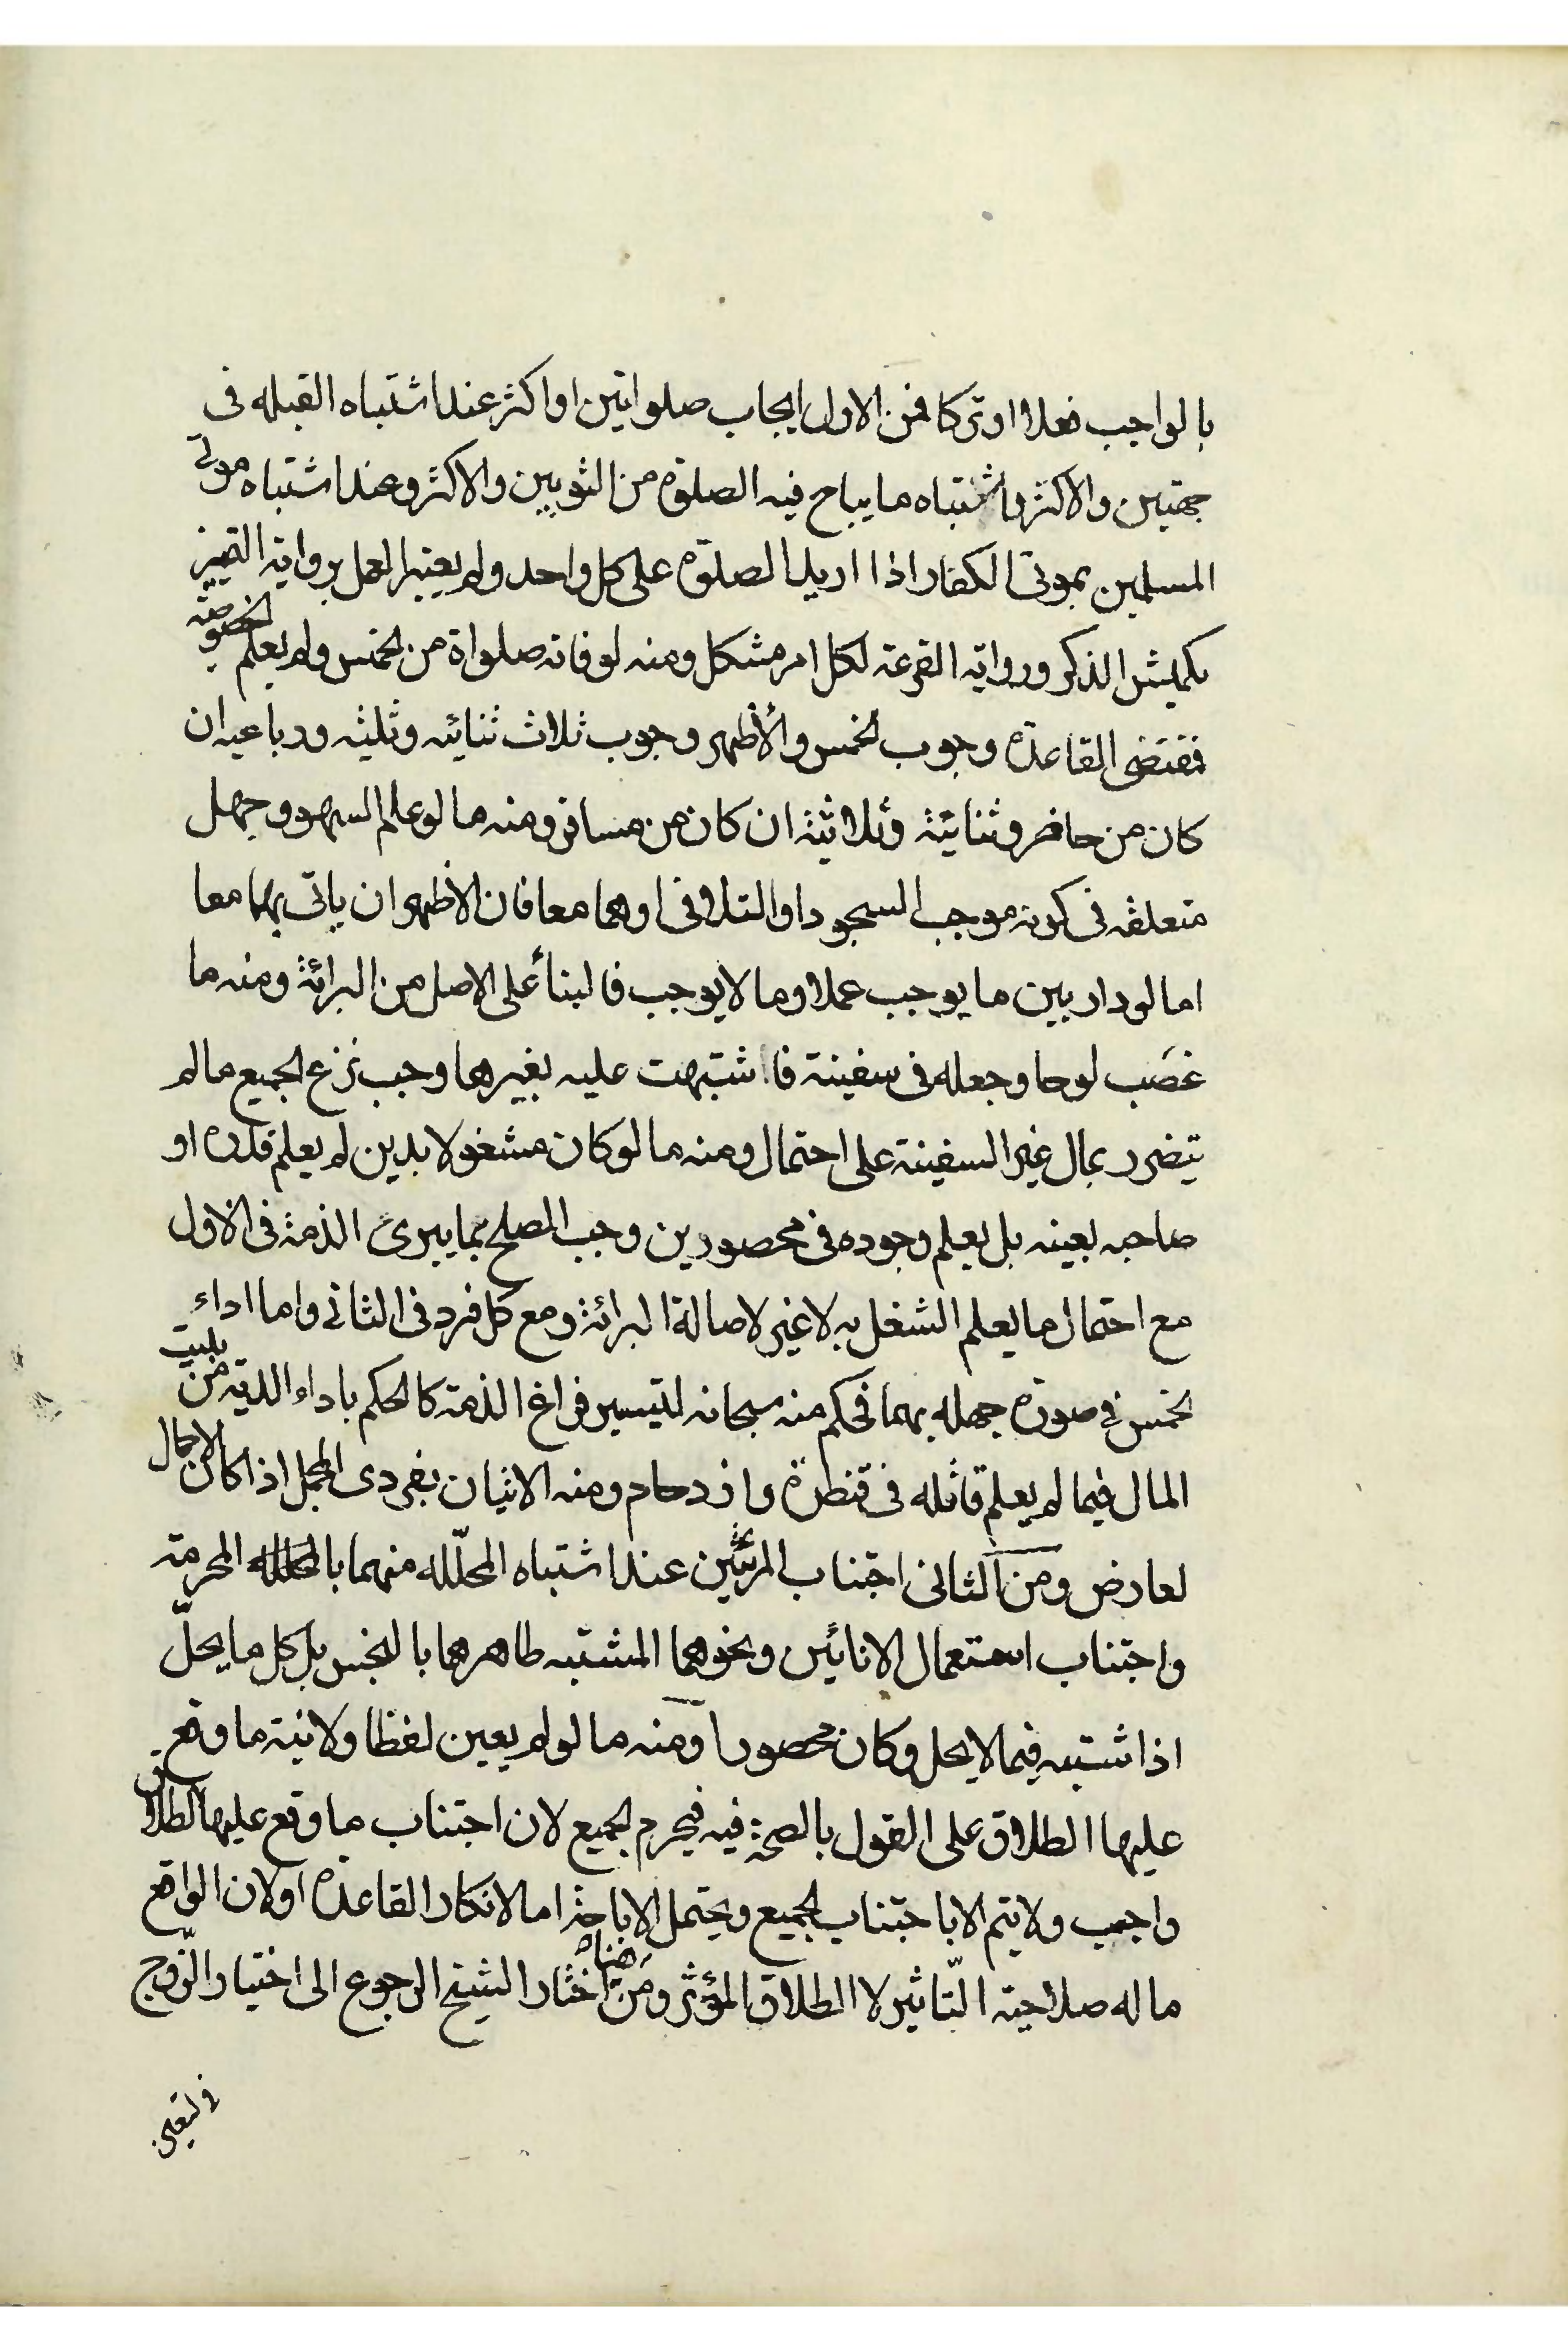 بالواجب فعلا اوتركا فمن الاول ايجاب صلواتين او اكثر عند اشتباه القبله فى
جهتين والاكثر واشتباه ما يباح فيه الصلوة من الثوبين والاكثر وعند اشتباه موتى
المسلمين بموتى الكفار اذا اريد الصلوة على كل واحد ولم يعتبر العمل برواية التميز
بكميش الذكر ورواية القرعة لكل امر مشكل ومنه لو فاته صلواة من الخمس ولم يعلم الخصوصيه
فمقتضى القاعدة وجوب الخمس والأظهر وجوب ثلاث ثنائيه وثلثيه ورباعيه ان
كان من حاضر وثنائيّة وثلاثيّة ان كان من مسافر ومنه ما لو علم السهو وجهل
متعلقه فى كونه موجب السجود او التلافى اوهما معا فان الأظهر ان ياتى بهما معا
اما لو دار بين ما يوجب عملا وما لا يوجب فالبنأ على الاصل من البرائة ومنه ما
غصب لوحا وجعله فى سفينة فاشتبهت عليه بغيرها وجب نزع الجميع ما لم
يتضرر بمال غير السفينة على احتمال ومنه ما لو كان مشغولا بدين لم يعلم قدره او
صاحبه بعينه بل يعلم وجوده فى محصورين وجب الصلح بما يبرئ الذمة فى الاول
مع احتمال ما يعلم الشغل به لا غير لاصالة البرائة ومع كل فرد فى الثانى واما اداء
الخمس فى صورة جهله بهما فحكم منه سبحانه لتيسير فراغ الذمة كالحكم باداء الدية من بيت
المال فيما لم يعلم قاتله فى قنطرة وازدحام ومنه الاتيان بفردى المجمل اذا كان الاجمال
لعارض ومن الثانى اجتناب المرئتين عند اشتباه المحلّله منهما بالمحرمة
واجتناب استعمال الانائين ونحوهما المشتبه طاهرهما بالنجس بل كل ما يحلّ
اذا شتبه فيما لا يحل وكان محصورا ومنه ما لو لم يعين لفظا ولا نية ما وقع
عليها الطلاق على القول بالصحة فيه فيحرم الجميع لان اجتناب ما وقع عليها الطلاق
واجب ولا يتم الا باجتناب الجميع ويحتمل الاباحة اما لانكار القاعدة اولان الواقع
ما له صلاحية التّاثير لا الطلاق المؤثر ومن هنا اختار الشيخ الرجوع الى اختيار الزّوج
فى تعيين